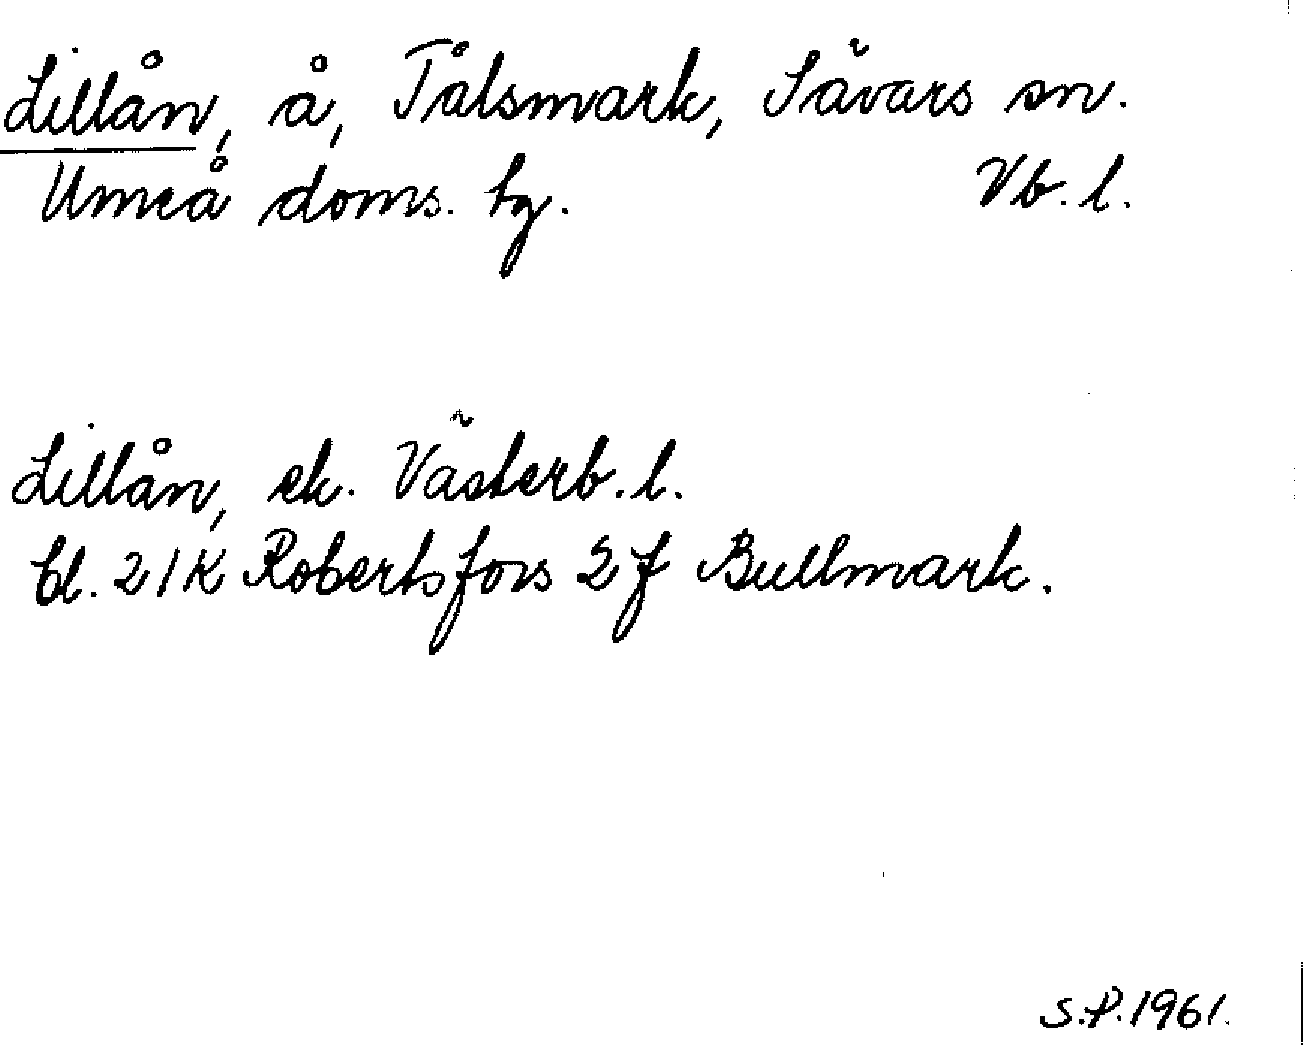 Lillån, å, Tålsmark, Sävars sn.
Umeå doms. tg. Vb. l.
Lillån, ek. Västerb. l.
bl. 21K Robertsfors 2f Bullmark.
S.P. 1961.